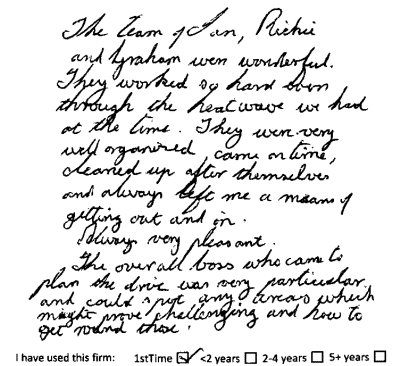 The team of Ian, Richie
and Graham were wonderful.
They worked so hard even
through the heatwave we had
at the time. They were very
well organised, came on time,
cleaned up after themselves
and always left me a means of
getting out and in.
Always very pleasant.
The overall boss who came to
plan the drive was very particular
and could spot any areas which
might prove challenging and how to
get round those.
I have used this firm: 1stTime ☑ <2 years ☐ 2-4 years ☐ 5+ years ☐